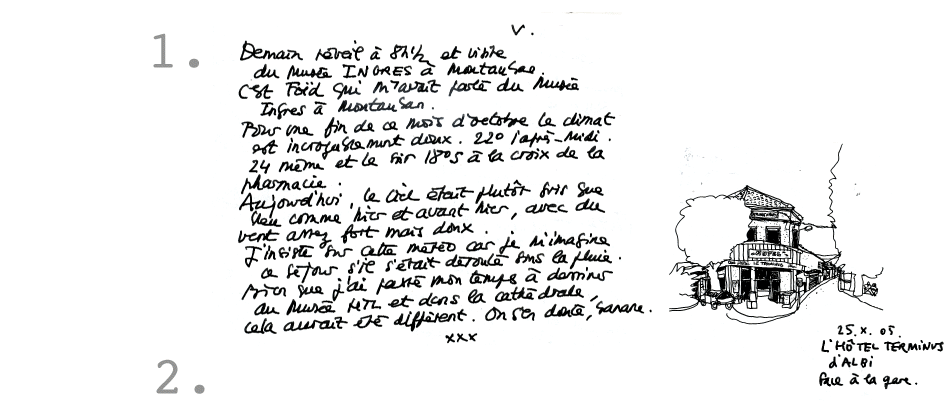 1.
V.
Demain réveil à 8h½ et visite
du Musée INGRES à Montauban.
C'est Foïd qui m'avait parlé du Musée
Ingres à Montauban.
Pour une fin de ce mois d'octobre le climat
est incroyablement doux. 22° l'après-midi.
24 même et le soir 18°5 à la croix de la
pharmacie.
Aujourd'hui, le ciel était plutôt gris que
bleu comme hier et avant hier, avec du
vent assez fort mais doux.
J'insiste sur cette météo car je m'imagine
ce séjour s'il s'était déroulé sous la pluie.
Bien que j'ai passé mon temps à dessiner
au Musée HTL et dans la cathédrale,
cela aurait été différent. On s'en doute,
xxx
HOTEL
25.X.05.
L'HÔTEL TERMINUS
d'ALBI
face à la gare.
2.